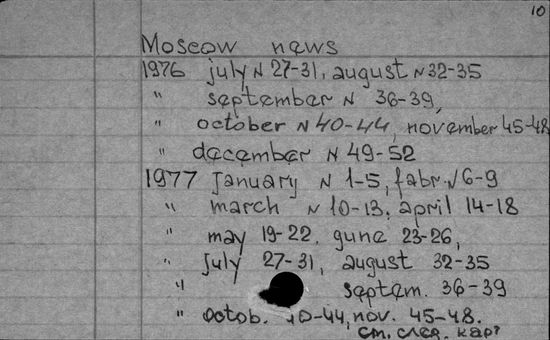 10
Moscow news
1976 july N 27-31, august N 32-35
" september N 36-39,
" october N 40-44, november 45-48
" december N 49-52
1977 january N 1-5, fabr. N 6-9
" march N 10-13, april 14-18
" may 19-22, gune 23-26,
" july 27-31, august 32-35
" septem. 36-39
" octob. 40-44, nov. 45-48.
см. след. карт